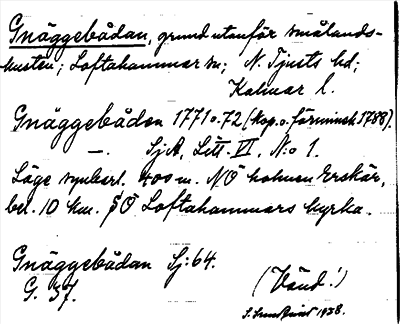 Gnäggebådan, grund utanför smålands-
kusten; Loftahammar sn; N. Tjusts hd;
Kalmar l.
Gnäggebåden 1771 o. 72 (kop. o. förminsk. 1788).
—. Sj.A, Litt. VI, N:o 1.
Läge synbarl. 400 m. NÖ holmen Erskär,
bel. 10 km. SÖ Loftahammars kyrka.
Gnäggebådan Sj: 64.
G. 37.
(Vänd!)
1938.